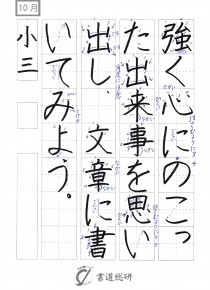 10月
強く心にのこっ
た出来事を思い
出し、文章に書
いてみよう。
小三
書道総研